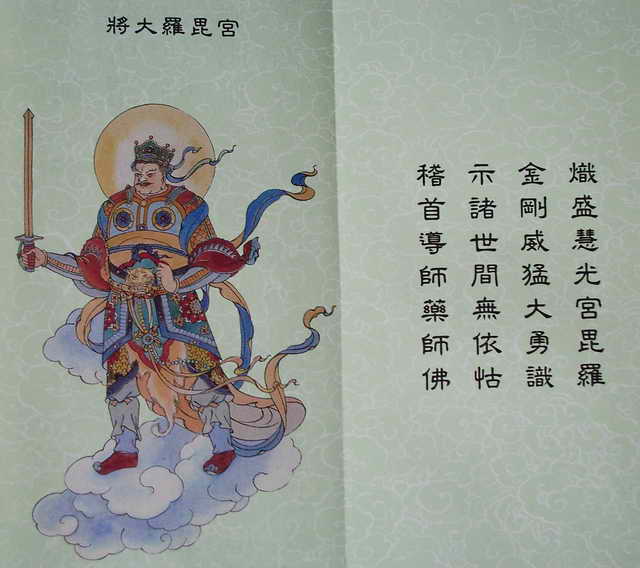 宮毘羅大將
熾盛慧光宮毘羅
金剛威猛大勇識
示諸世間無依怙
稽首導師藥師佛